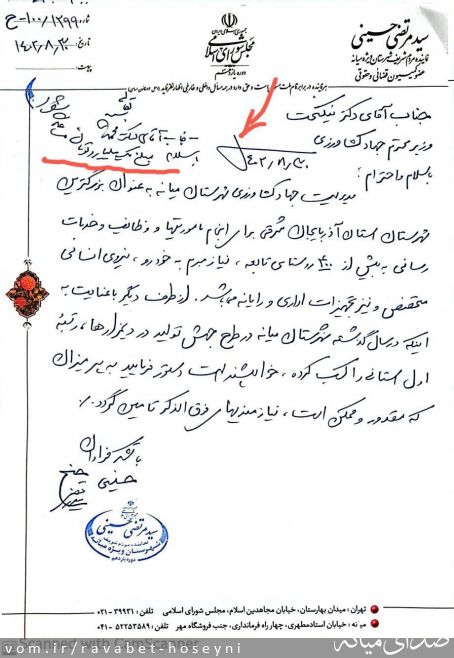 ۱۰۰/۱۲۹۹-ح
تاریخ: ۱۴۰۲/۸/۳۰
پیوست:
جمهوری اسلامی ایران
مجلس شورای اسلامی
دوره یازدهم
سید مرتضی حسینی
نماینده مردم شریف شهرستان ویژه میانه
عضو کمیسیون قضائی و حقوقی
جناب آقای دکتر نیکبخت
وزیر محترم جهاد کشاورزی
باسلام و احترام؛
۱۴۰۲/۸/۳۰
مدیریت جهاد کشاورزی شهرستان میانه به عنوان بزرگترین
شهرستان استان آذربایجان شرقی برای انجام ماموریتها و وظایف و خدمات
رسانی به بیش از ۳۰۰ روستای تابعه، نیاز مبرم به خودرو، نیروی انسانی
متخصص و نیز تجهیزات اداری و رایانه میباشد. از طرف دیگر با عنایت به
اینکه در سال گذشته شهرستان میانه در طرح جهش تولید در دیمزارها، رتبه
اول استانی را کسب کرده، خواهشمند است دستور فرمایید به هر میزان
که مقدور و ممکن است، نیازمندیهای فوق الذکر تامین گردد./
با تشکر فراوان
حسینی
سید مرتضی حسینی
نماینده مردم شریف
شهرستان ویژه میانه
دوره یازدهم
تهران: میدان بهارستان، خیابان مجاهدین اسلام، مجلس شورای اسلامی تلفن: ۳۹۹۳۱-۰۲۱
میانه: خیابان استاد مطهری، چهار راه فرمانداری، جنب فروشگاه مهر تلفن: ۵۲۲۵۳۵۸۹-۰۴۱
Scanned with CamScanner
صدای میانه
vom.ir/ravabet-hoseyni